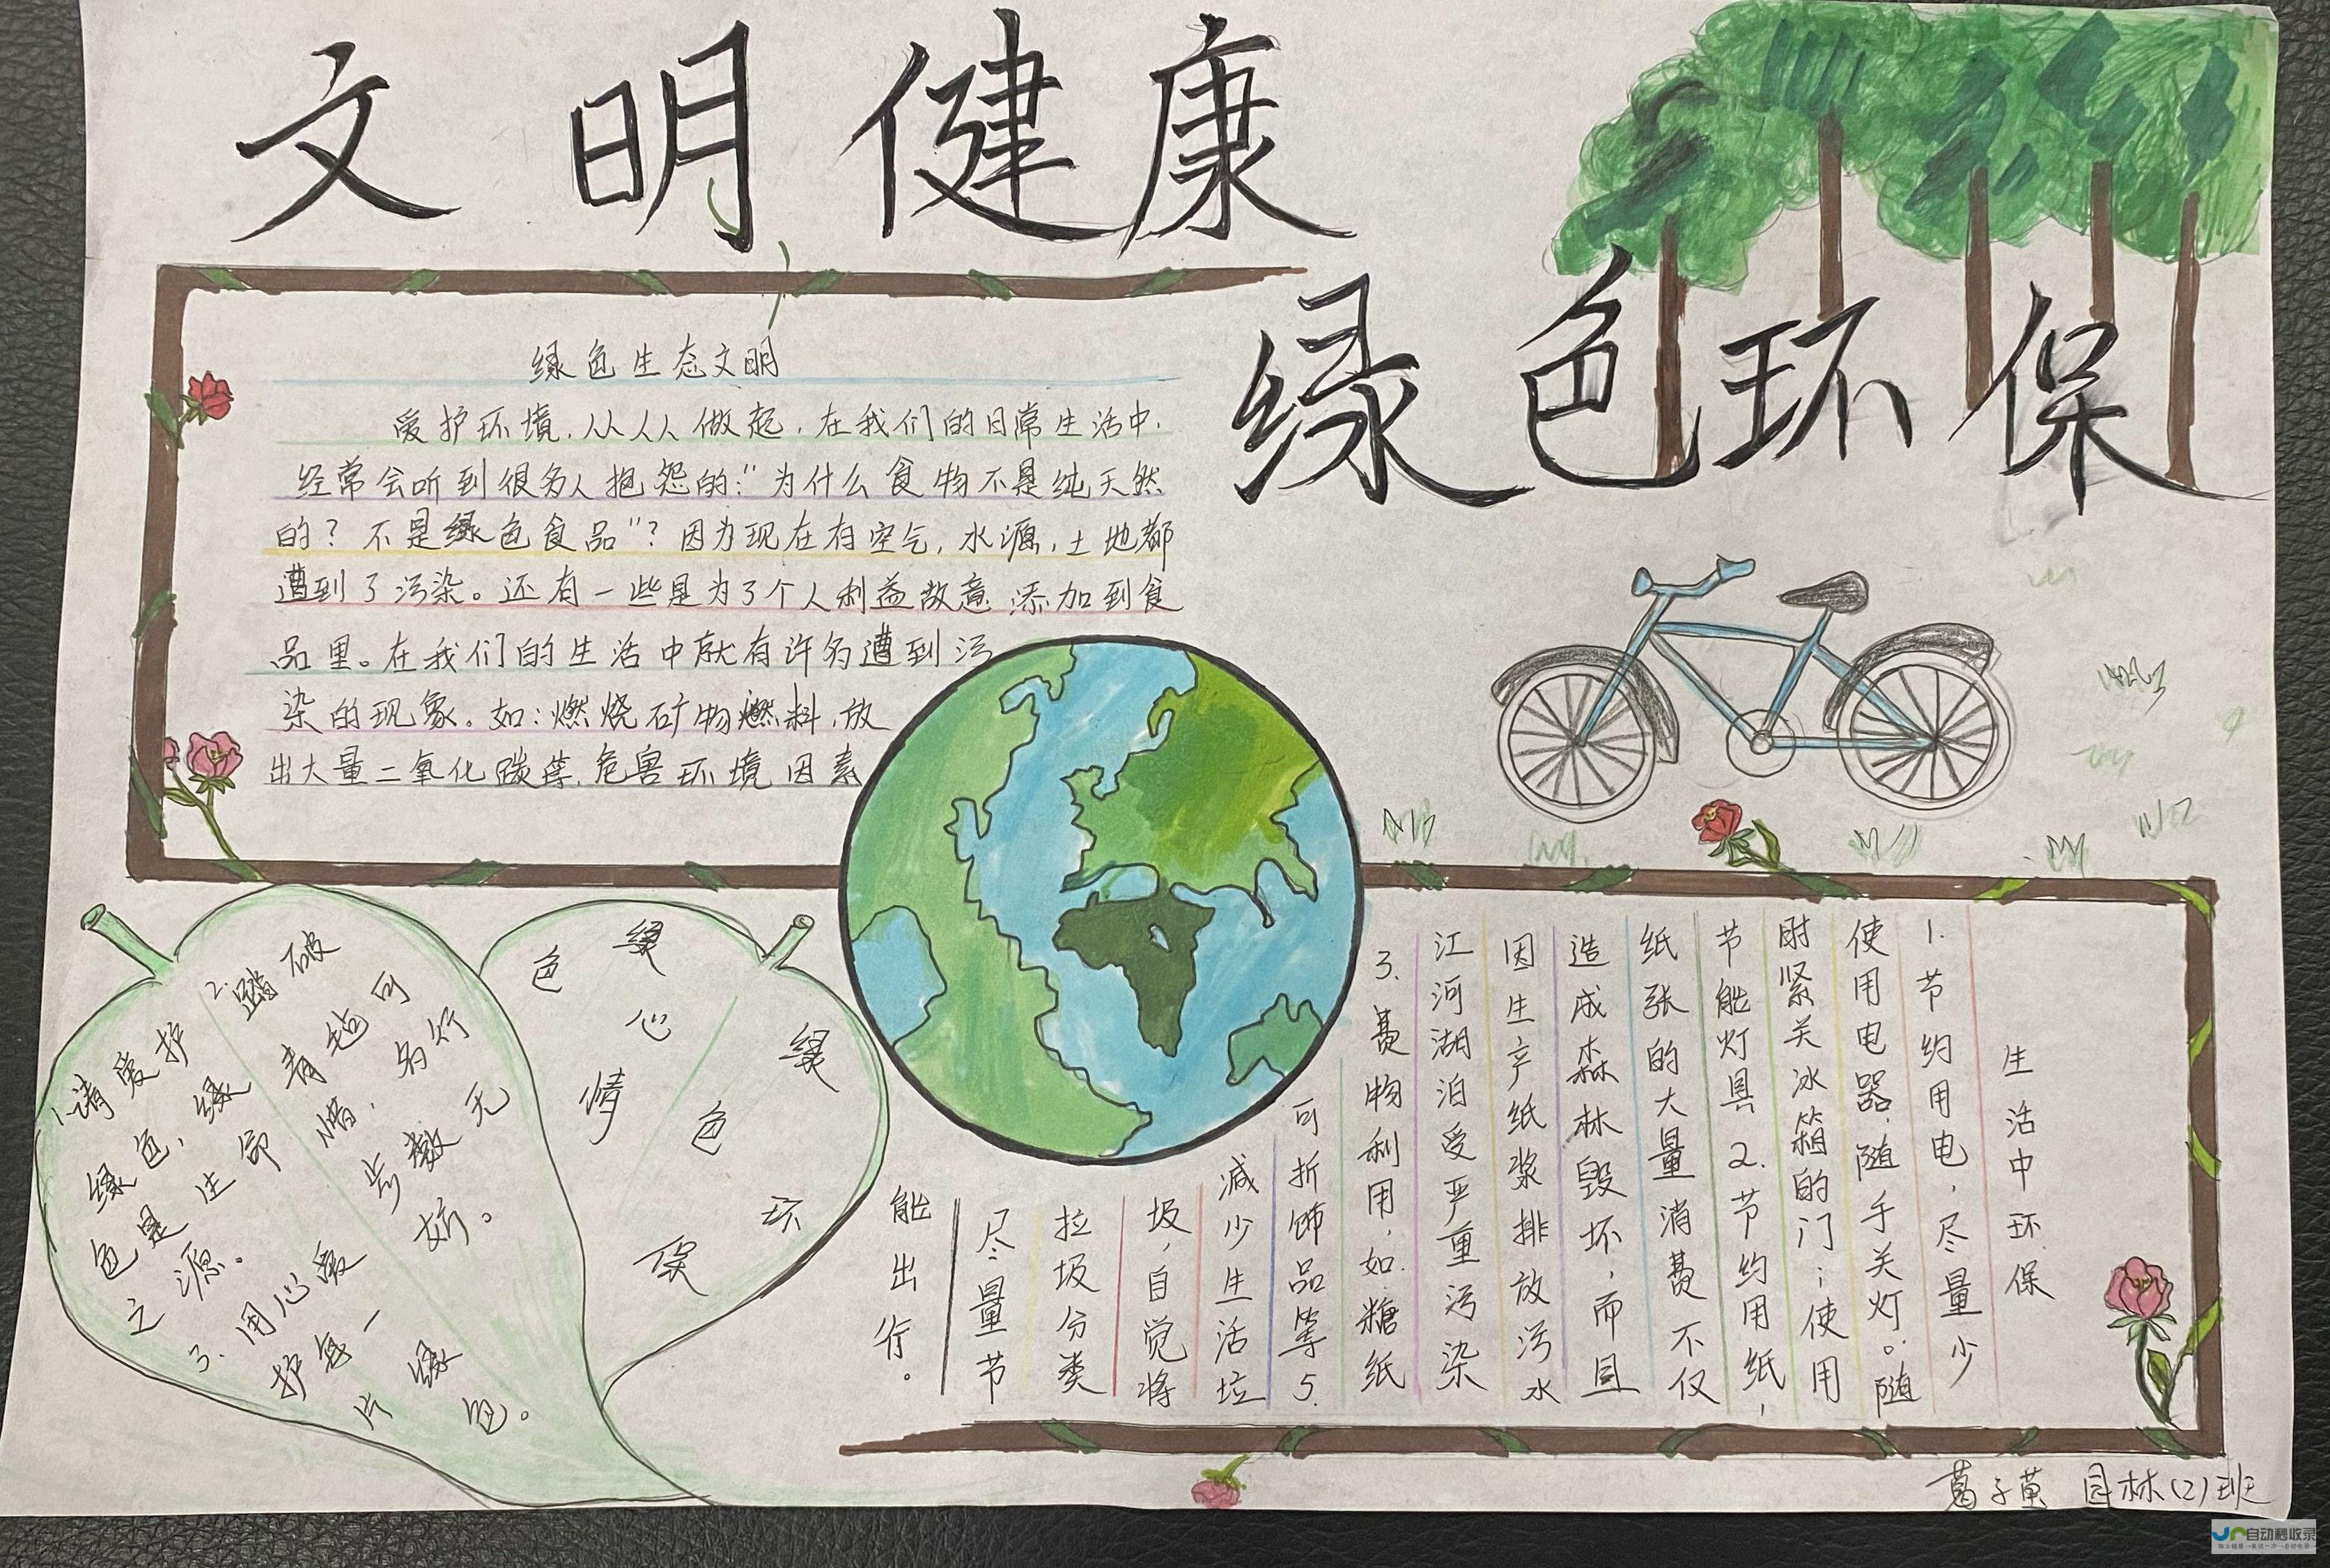 文明健康
绿色环保
绿色生态文明
爱护环境,从人人做起,在我们的日常生活中,
经常会听到很多人抱怨的:“为什么食物不是纯天然
的?不是绿色食品”?因为现在有空气,水源,土地都
遭到了污染。还有一些是为了个人利益故意添加到食
品里。在我们的生活中就有许多遭到污
染的现象。如:燃烧矿物燃料,放
出大量二氧化碳等,危害环境因素
1.请爱护
绿色,绿
色是生命
之源。
2.踏破
青毡可
惜,多行
步数无
妨。
3.用心爱
护每一
片绿
色。
绿色心情
绿色环
生活中环保
1.节约用电,尽量少
使用电器,随手关灯。随
时紧关冰箱的门;使用
节能灯具2.节约用纸,
纸张的大量消费不仅
造成森林毁坏,而且
因生产纸浆排放污水
江河湖泊受严重污染
3.费物利用,如.糖纸
可折饰品等5.
减少生活垃
圾,自觉将
垃圾分类
尽量节
能出行。
葛子英 园林(2)班
自动秒收录